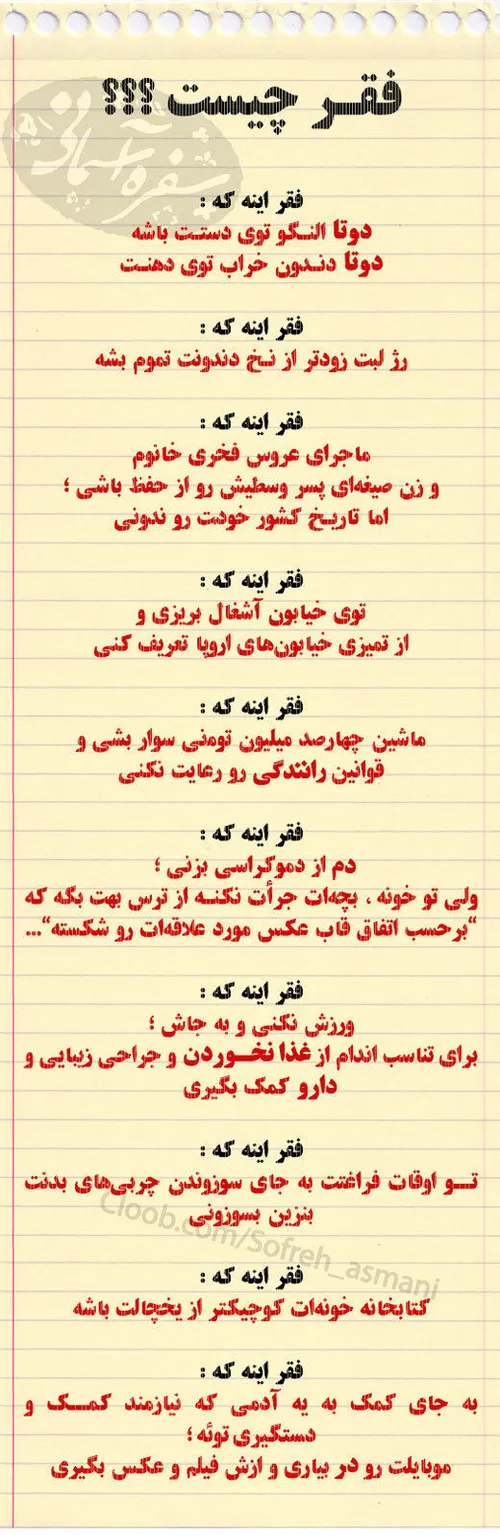 فقر چیست ؟؟؟
سفره آسمانی
فقر اینه که :
دوتا النگو توی دستت باشه
دوتا دندون خراب توی دهنت
فقر اینه که :
رژ لبت زودتر از نخ دندونت تموم بشه
فقر اینه که :
ماجرای عروس فخری خانوم
و زن صیغه‌ای پسر وسطیش رو از حفظ باشی ؛
اما تاریخ کشور خودت رو ندونی
فقر اینه که :
توی خیابون آشغال بریزی و
از تمیزی خیابون‌های اروپا تعریف کنی
فقر اینه که :
ماشین چهارصد میلیون تومنی سوار بشی و
قوانین رانندگی رو رعایت نکنی
فقر اینه که :
دم از دموکراسی بزنی ؛
ولی تو خونه ، بچه‌ات جرأت نکنه از ترس بهت بگه که
“برحسب اتفاق قاب عکس مورد علاقه‌ات رو شکسته“...
فقر اینه که :
ورزش نکنی و به جاش ؛
برای تناسب اندام از غذا نخوردن و جراحی زیبایی و
دارو کمک بگیری
فقر اینه که :
تو اوقات فراغتت به جای سوزوندن چربی‌های بدنت
بنزین بسوزونی
Cloob.com/Sofreh_asmani
فقر اینه که :
کتابخانه خونه‌ات کوچیکتر از یخچالت باشه
فقر اینه که :
به جای کمک به یه آدمی که نیازمند کمک و
دستگیری توئه ؛
موبایلت رو در بیاری و ازش فیلم و عکس بگیری